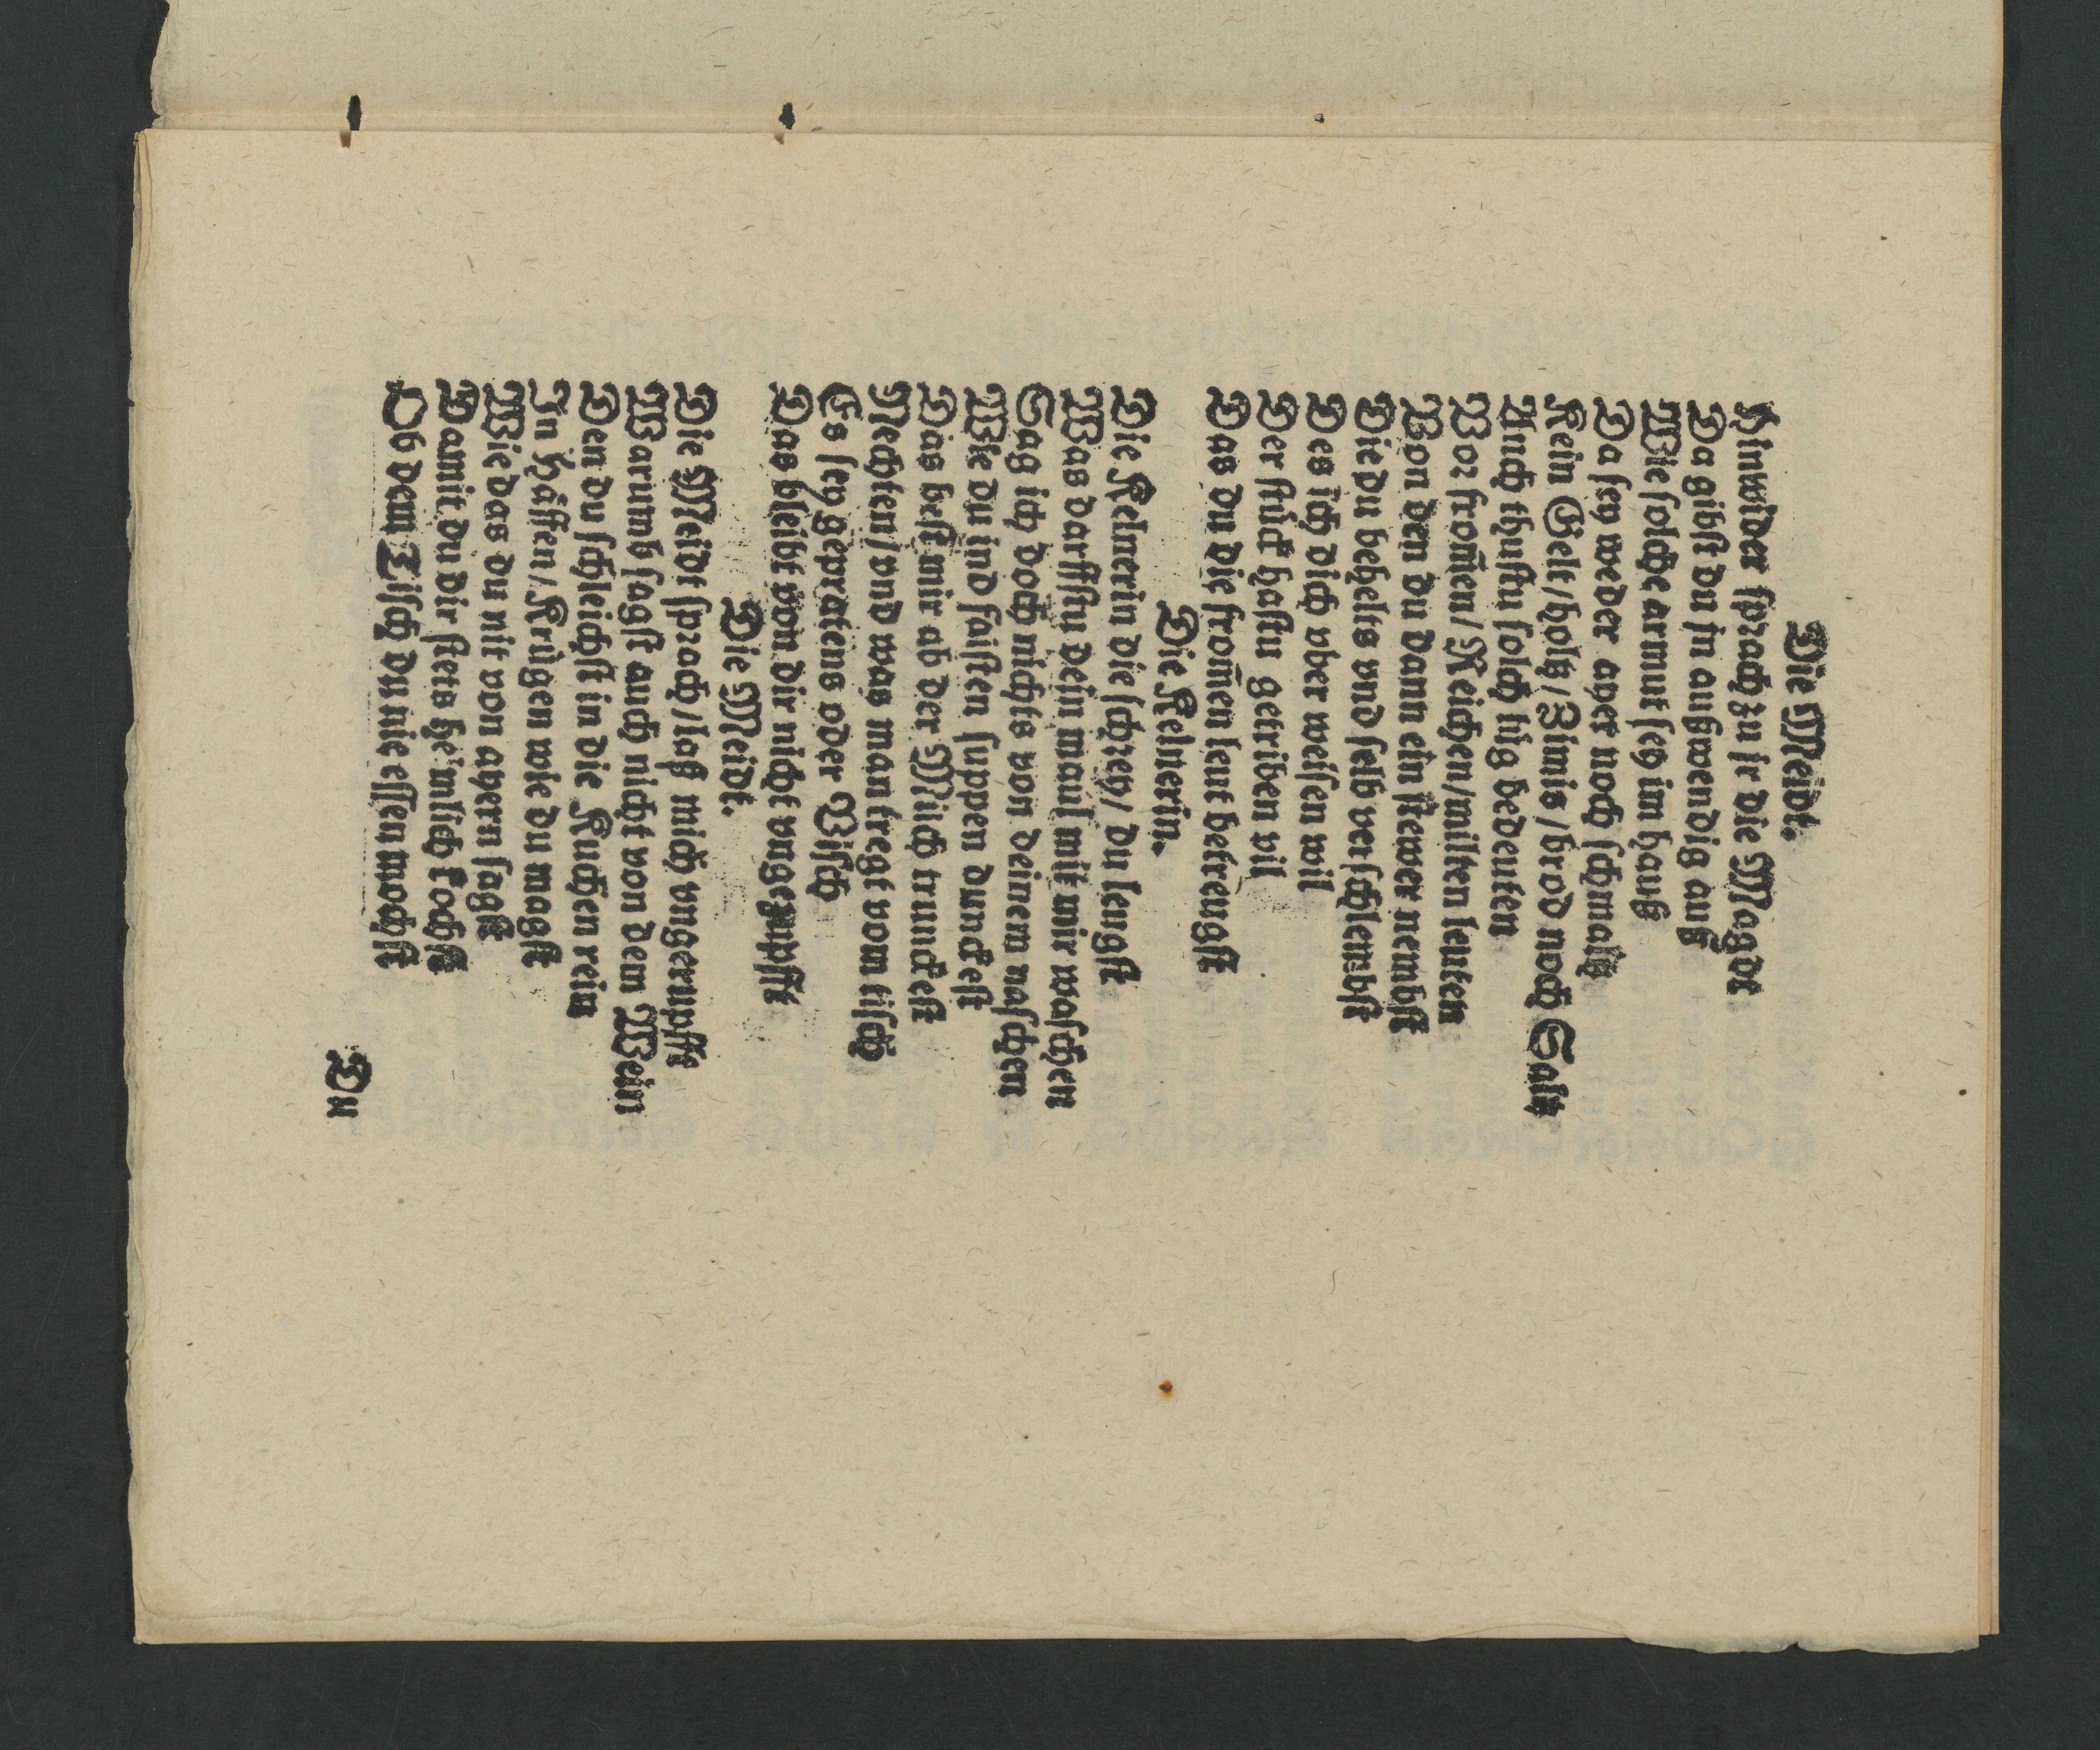 Die Meidt.
Hinwider sprach zu jr die Magdt
Da gibst du jn außwendig auß
Wie solche armut sey im hauß
Da sey weder ayer noch schmaltz
Kein Gelt / holtz / Zimis / brod noch Saltz
Auch thustu solch lüg bedeuten
Vor fromen̄ / Reichen / milten leuten
Von den du dann ein stewer nembst
Die du behelts vnd selb verschlembst
Des ich dich vber weisen wil
Der stück hastu getriben vil
Das du die from̄en leut betreugst
Die Kelnerin.
Die Kelnerin die schrey / du leugst
Was darffstu dein maul mit mir waschen
Sag ich doch nichts von deinem naschen
Wie du ind faisten suppen dunckest
Das best mir ab der Milch trunckest
Nechten / vnd was man tregt vom tisch
Es sey gepratens oder Visch
Das bleibt von dir nicht vngezupfft
Die Meidt.
Die Meidt sprach / laß mich vngerupfft
Warumb sagst auch nicht von dem Wein
Den du schleichst in die Kuchen rein
In Häffen / Krügen wie du magst
Wie das du nit von ayern sagst
Damit du dir stets heimlich kochst
Ob dem Tisch du nie essen mochst
Du